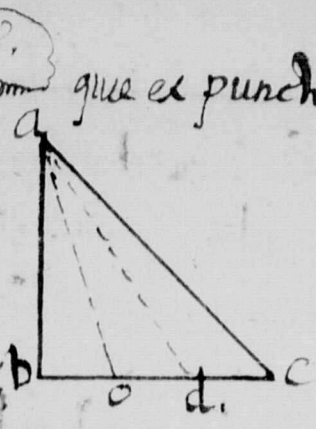 quæ ex punch
a
b o d. c